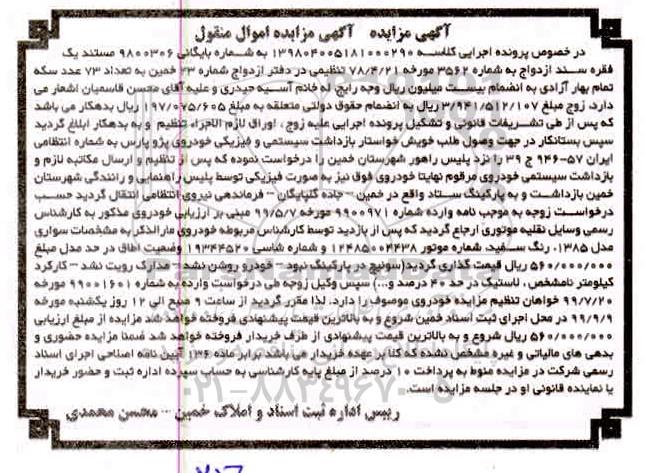 آگهی مزایده   آگهی مزایده اموال منقول
در خصوص پرونده اجرایی کلاسه ۱۳۹۸۰۴۰۰۵۱۸۱۰۰۰۲۹۰ به شماره بایگانی ۹۸۰۰۳۰۶ مستند یک
فقره سند ازدواج به شماره ۳۵۶۲ مورخه ۷۸/۴/۲۱ تنظیمی در دفتر ازدواج شماره ۲۳ خمین به تعداد ۷۳ عدد سکه
تمام بهار آزادی به انضمام بیست میلیون ریال وجه رایج، له خانم آسیه حیدری و علیه آقای محسن قاسمیان اشعار می
دارد، زوج مبلغ ۳/۹۴۱/۵۱۲/۱۰۷ ریال به انضمام حقوق دولتی متعلقه به مبلغ ۱۹۷/۰۷۵/۶۰۵ ریال بدهکار می باشد
که پس از طی تشریفات قانونی و تشکیل پرونده اجرایی علیه زوج، اوراق لازم الاجراء تنظیم و به بدهکار ابلاغ گردید
سپس بستانکار در جهت وصول طلب خویش خواستار بازداشت سیستمی و فیزیکی خودروی پژو پارس به شماره انتظامی
ایران ۵۷-۹۴۶ ج ۳۹ را نزد پلیس راهور شهرستان خمین را درخواست نموده که پس از تنظیم و ارسال مکاتبه لازم و
بازداشت سیستمی خودروی مرقوم نهایتا خودروی فوق نیز به صورت فیزیکی توسط پلیس راهنمایی و رانندگی شهرستان
خمین بازداشت و به پارکینگ ستاد واقع در خمین - جاده گلپایگان - فرماندهی نیروی انتظامی انتقال گردید حسب
درخواست زوجه به موجب نامه وارده شماره ۹۹۰۰۹۷۱ مورخه ۹۹/۵/۷ مبنی بر ارزیابی خودروی مذکور به کارشناس
رسمی وسایل نقلیه موتوری ارجاع گردید که پس از بازدید توسط کارشناس مربوطه خودروی مارالذکر به مشخصات سواری
مدل ۱۳۸۵، رنگ سفید، شماره موتور ۱۲۴۸۵۰۰۴۴۳۸ و شماره شاسی ۱۹۳۴۴۵۲۰ وضعیت اطاق در حد مدل مبلغ
۵۶۰/۰۰۰/۰۰۰ ریال قیمت گذاری گردید(سوئیچ در پارکینگ نبود - خودرو روشن نشد - مدارک رویت نشد - کارکرد
کیلومتر نامشخص، لاستیک در حد ۴۰ درصد و...) سپس وکیل زوجه طی درخواست وارده به شماره ۹۹۰۰۱۶۰۱ مورخه
۹۹/۷/۲۰ خواهان تنظیم مزایده خودروی موصوف را دارد. لذا مقرر گردید از ساعت ۹ صبح الی ۱۲ روز یکشنبه مورخه
۹۹/۹/۹ در محل اجرای ثبت اسناد خمین شروع و به بالاترین قیمت پیشنهادی فروخته خواهد شد مزایده از مبلغ ارزیابی
۵۶۰/۰۰۰/۰۰۰ ریال شروع و به بالاترین قیمت پیشنهادی از طرف خریدار فروخته خواهد شد ضمنا مزایده حضوری و
بدهی های مالیاتی و غیره مشخص نشده که کلا بر عهده خریدار می باشد، برابر ماده ۱۳۶ آیین نامه اصلاحی اجرای اسناد
رسمی شرکت در مزایده منوط به پرداخت ۱۰ درصد از مبلغ پایه کارشناسی به حساب سپرده اداره ثبت و حضور خریدار
یا نماینده قانونی او در جلسه مزایده است.
رییس اداره ثبت اسناد و املاک خمین - محسن محمدی
۰۲۱-۸۸۳۴۹۶۷۰-۵